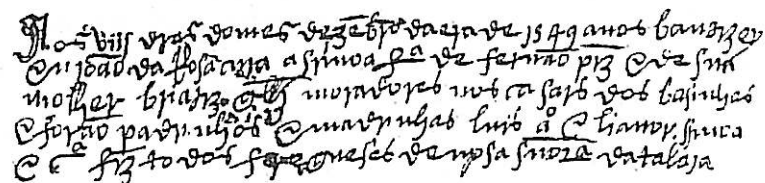 Aos biij dias do mes de dezẽbro da era de 1549 anos bautizey
eu joão da fonsequa a simoa fª de fernão piz e de sua
molher briatiz moradores nos casais dos basinhos
e forão padrinhos e madrinhas luis aº e lianor
e cª friz todos fregueses de nosa snora datalaia